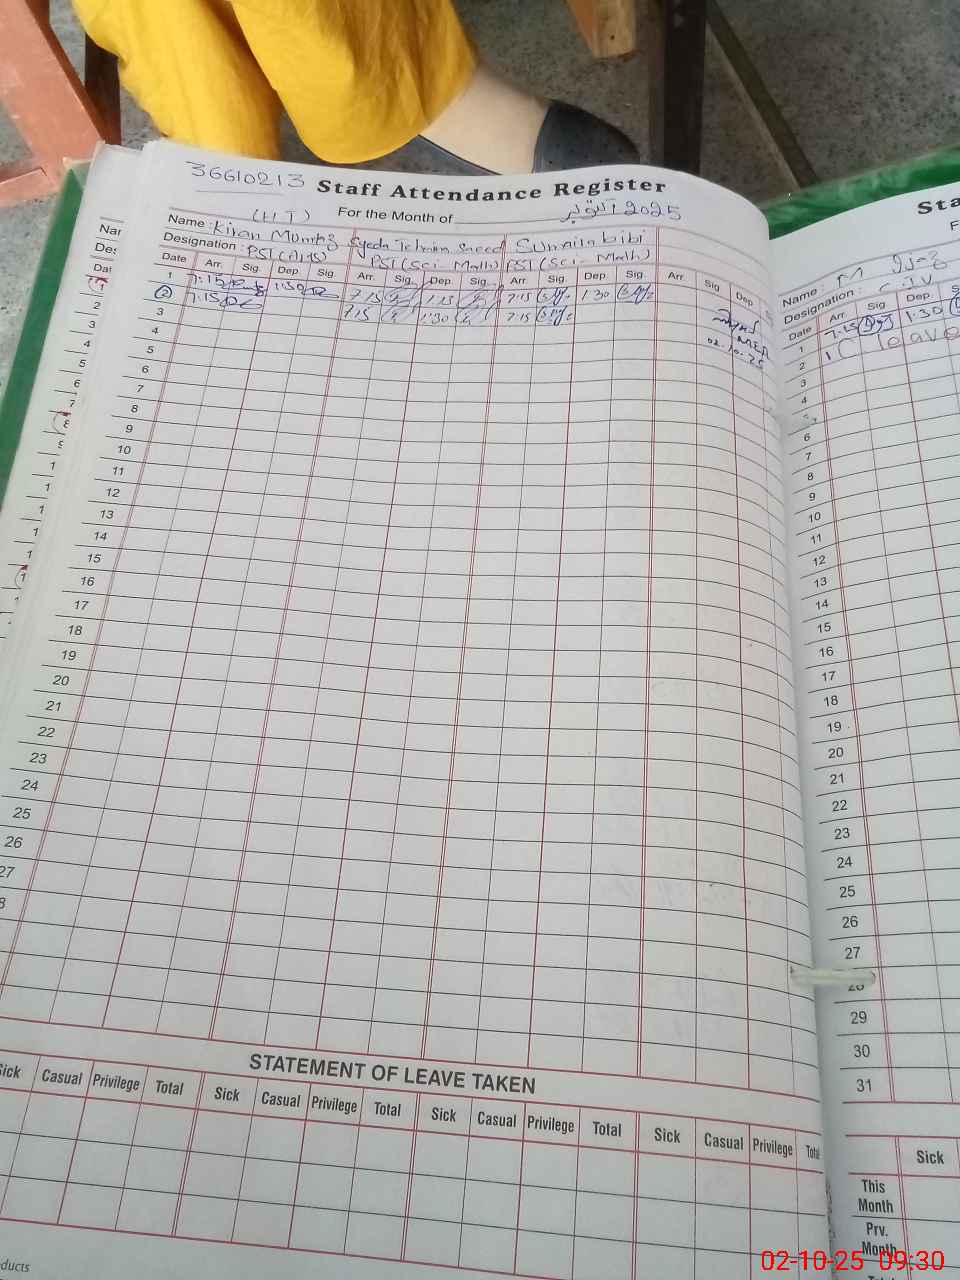 36610213 Staff Attendance Register
(HT) For the Month of اکتوبر 2025
Name: Kiran Mumtaz Syeda Tehrim Saeed Sumaila bibi
Designation: PST (Arts) PST (Sci. Math) PST (Sci. Math)
Date Arr. Sig. Dep. Sig. Arr. Sig. Dep. Sig. Arr. Sig. Dep. Sig. Arr. Sig Dep
1 7:15 1:30 7:15 1:15 7:15 1:30
2 7:15 7:15 1:30 7:15
3
MEA
02.10.25
4
5
6
7
8
9
10
11
12
13
14
15
16
17
18
19
20
21
22
23
24
25
26
27
8
STATEMENT OF LEAVE TAKEN
Sick Casual Privilege Total Sick Casual Privilege Total Sick Casual Privilege Total Sick Casual Privilege Total
ducts
Nar
Des
Dat
1
2
3
4
5
6
7
8
Sta
F
Name: M Ijaz
Designation:
Date Arr Sig Dep S
1 7:15 1:30
2 leave
3
4
5
6
7
8
9
10
11
12
13
14
15
16
17
18
19
20
21
22
23
24
25
26
27
28
29
30
31
Sick
This
Month
Prv.
Month
02-10-25 09:30